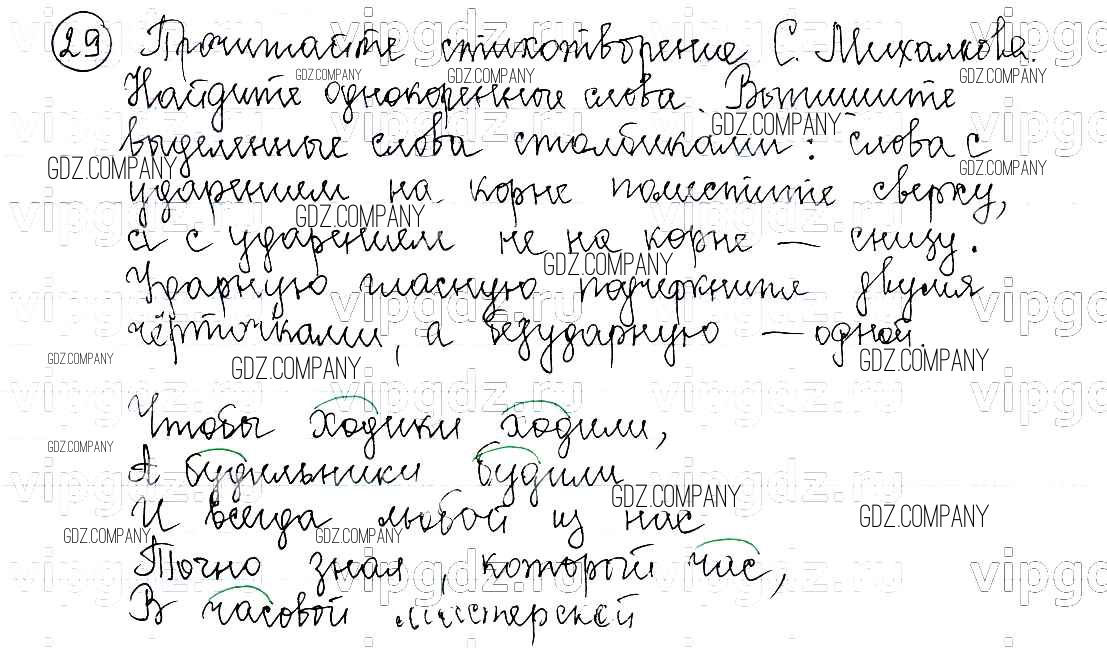 29 Прочитайте стихотворение С. Михалкова.
Найдите однокоренные слова. Выпишите
выделенные слова столбиками: слова с
ударением на корне поместите сверху,
а с ударением не на корне — снизу.
Ударную гласную подчеркните двумя
чёрточками, а безударную — одной.
Чтобы ходики ходили,
А будильники будили
И всегда любой из нас
Точно знал, который час,
В часовой мастерской
GDZ.COMPANY
vipgdz.ru